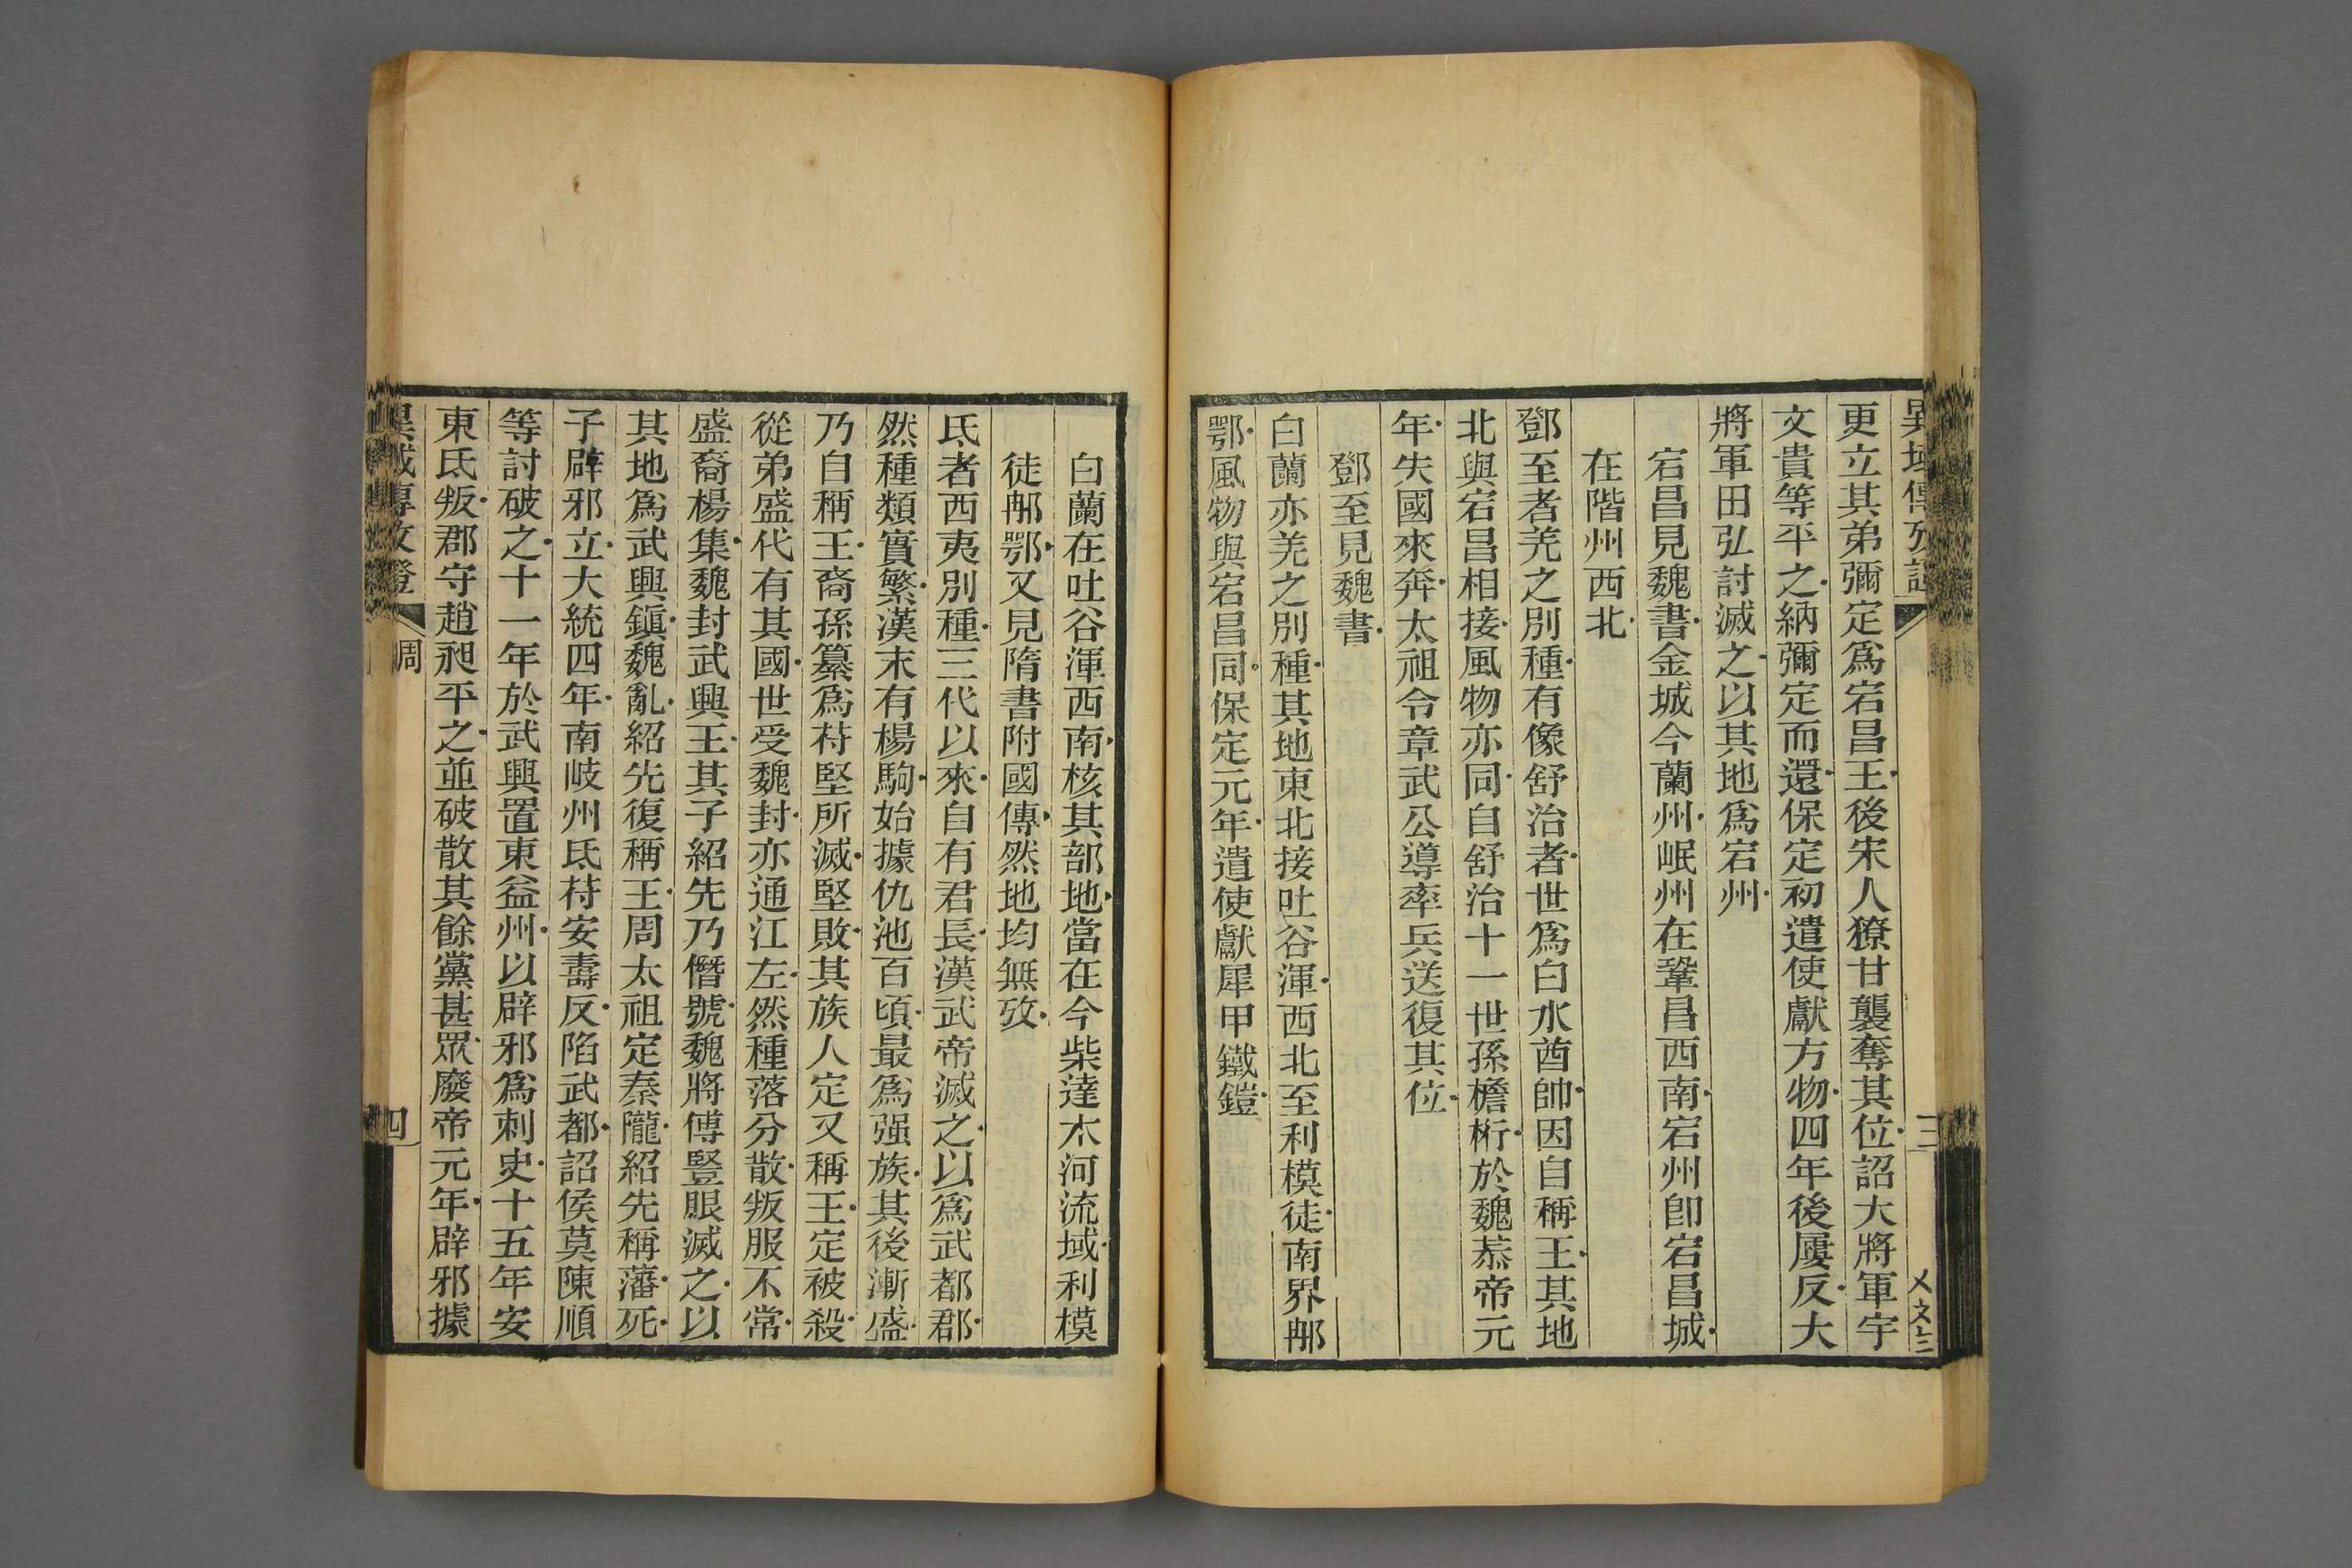 更立其弟彌定爲宕昌王後宋人獠甘襲奪其位詔大將軍宇
文貴等平之納彌定而還保定初遣使獻方物四年後屢反大
將軍田弘討滅之以其地爲宕州
宕昌見魏書金城今蘭州岷州在鞏昌西南宕州卽宕昌城
在階州西北
鄧至者羌之別種有像舒治者世爲白水酋帥因自稱王其地
北與宕昌相接風物亦同自舒治十一世孫檐桁於魏恭帝元
年失國來奔太祖令章武公導率兵送復其位
鄧至見魏書
白蘭亦羌之別種其地東北接吐谷渾西北至利模徒南界𨙻
鄂風物與宕昌同保定元年遣使獻犀甲鐵鎧
三
白蘭在吐谷渾西南核其部地當在今柴達木河流域利模
徒𨙻鄂又見隋書附國傳然地均無攷
氐者西夷別種三代以來自有君長漢武帝滅之以爲武都郡
然種類實繁漢末有楊駒始據仇池百頃最爲强族其後漸盛
乃自稱王裔孫纂爲苻堅所滅堅敗其族人定又稱王定被殺
從弟盛代有其國世受魏封亦通江左然種落分散叛服不常
盛裔楊集魏封武興王其子紹先乃僭號魏將傅豎眼滅之以
其地爲武興鎭魏亂紹先復稱王周太祖定秦隴紹先稱藩死
子辟邪立大統四年南岐州氐苻安壽反陷武都詔侯莫陳順
等討破之十一年於武興置東益州以辟邪爲刺史十五年安
東氐叛郡守趙昶平之並破散其餘黨甚眾廢帝元年辟邪據
異域傳攷證
周
四